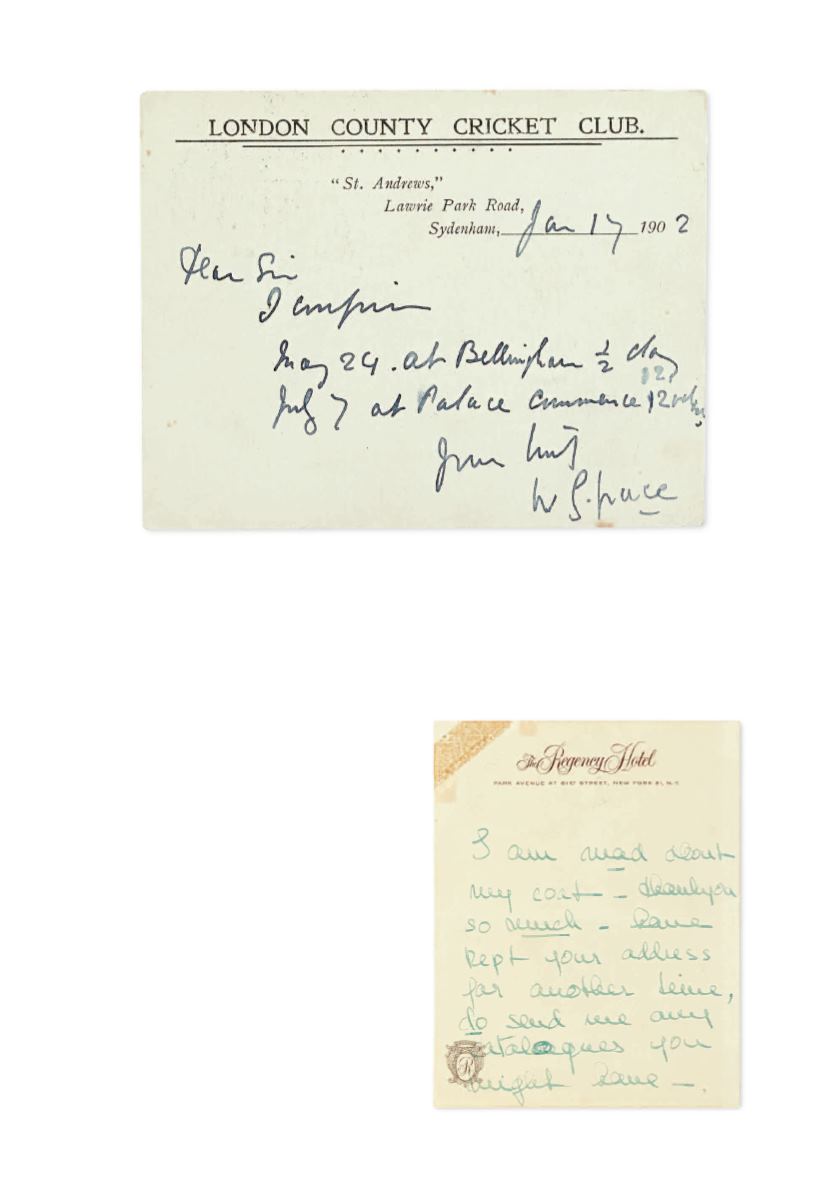 LONDON COUNTY CRICKET CLUB.
"St. Andrews,"
Lawrie Park Road,
Sydenham, Jan 17 1902
Dear Sir
I confirm
May 24. at Bellingham ½ day
12
July 7 at Palace commence 12
Yours truly
W G. Grace
The Regency Hotel
PARK AVENUE AT 61ST STREET, NEW YORK 21, N.Y.
I am mad about
my coat – thankyou
so much – have
kept your address
for another time,
do send me any
catalogues you
R
might have –.